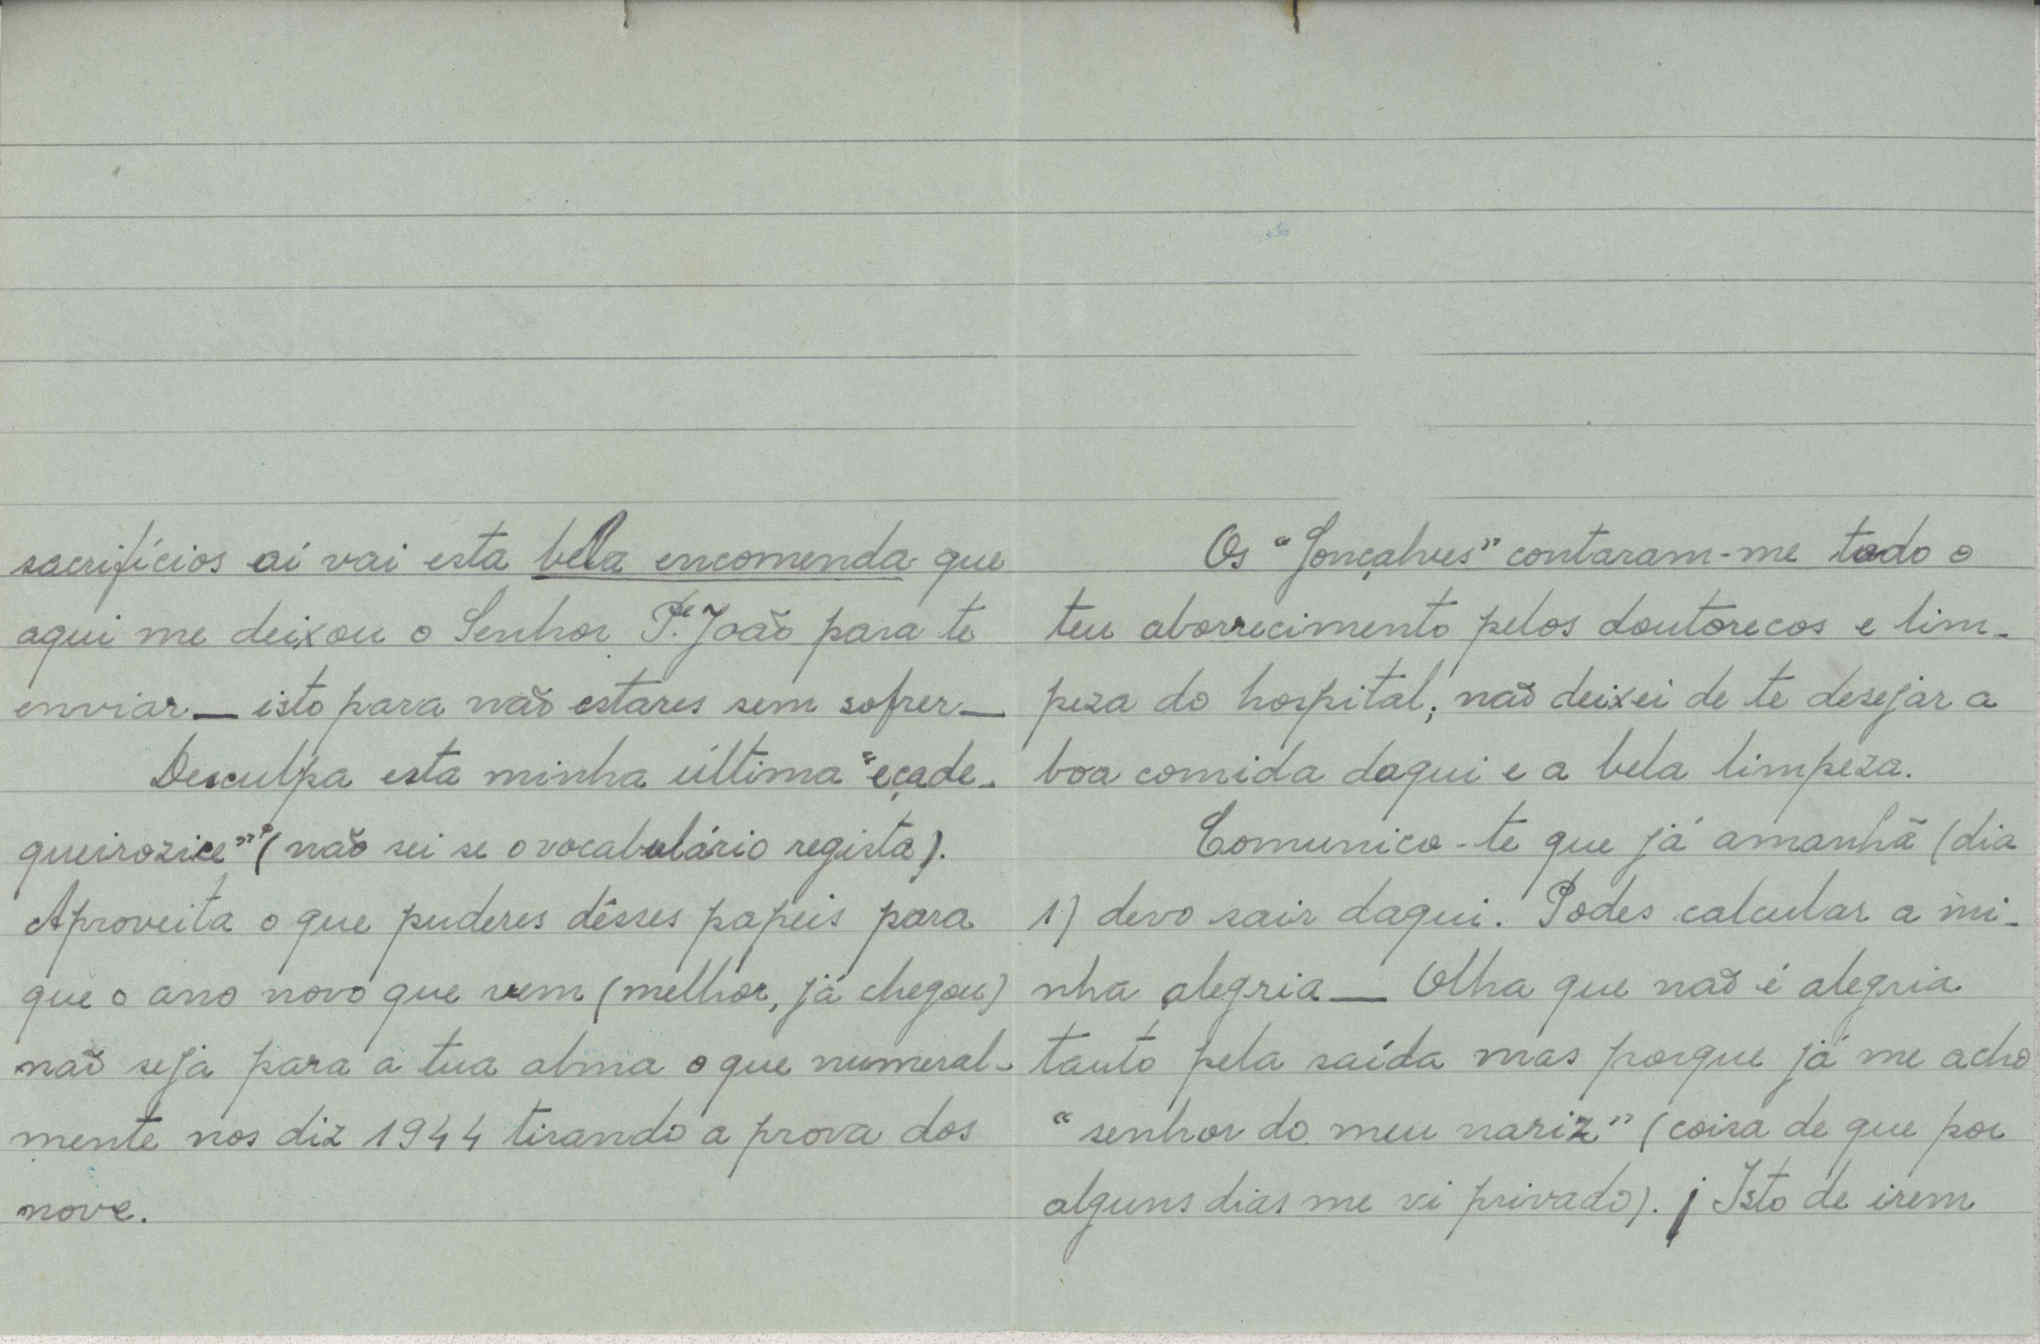 sacrifícios aí vai esta bela encomenda que
aqui me deixou o Senhor P.e João para te
enviar — isto para não estares sem sofrer —
Desculpa esta minha última "eçade-
queirozice" (não sei se o vocabulário regista).
Aproveita o que puderes dêsses papeis para
que o ano novo que vem (melhor, já chegou)
não seja para a tua alma o que numeral-
mente nos diz 1944 tirando a prova dos
nove.
Os "Gonçalves" contaram-me todo o
teu aborrecimento pelos doutorecos e lim-
peza do hospital; não deixei de te desejar a
boa comida daqui e a bela limpeza.
Comunico-te que já amanhã (dia
1) devo sair daqui. Podes calcular a mi-
nha alegria — Olha que não é alegria
tanto pela saída mas porque já me acho
"senhor do meu nariz" (coisa de que por
alguns dias me vi privado). ¡ Isto de irem